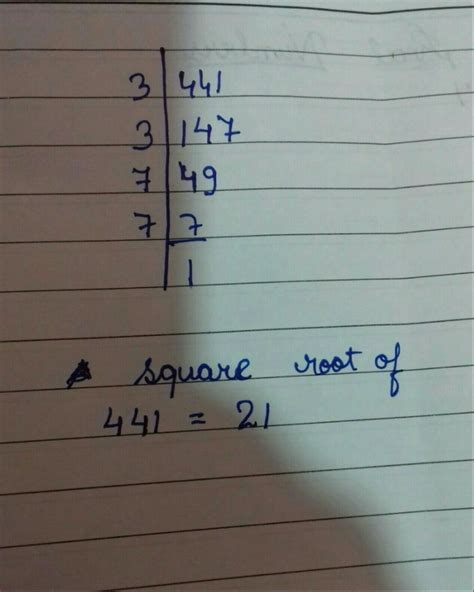 3 441
3 147
7 49
7 7
1
square root of
441 = 21